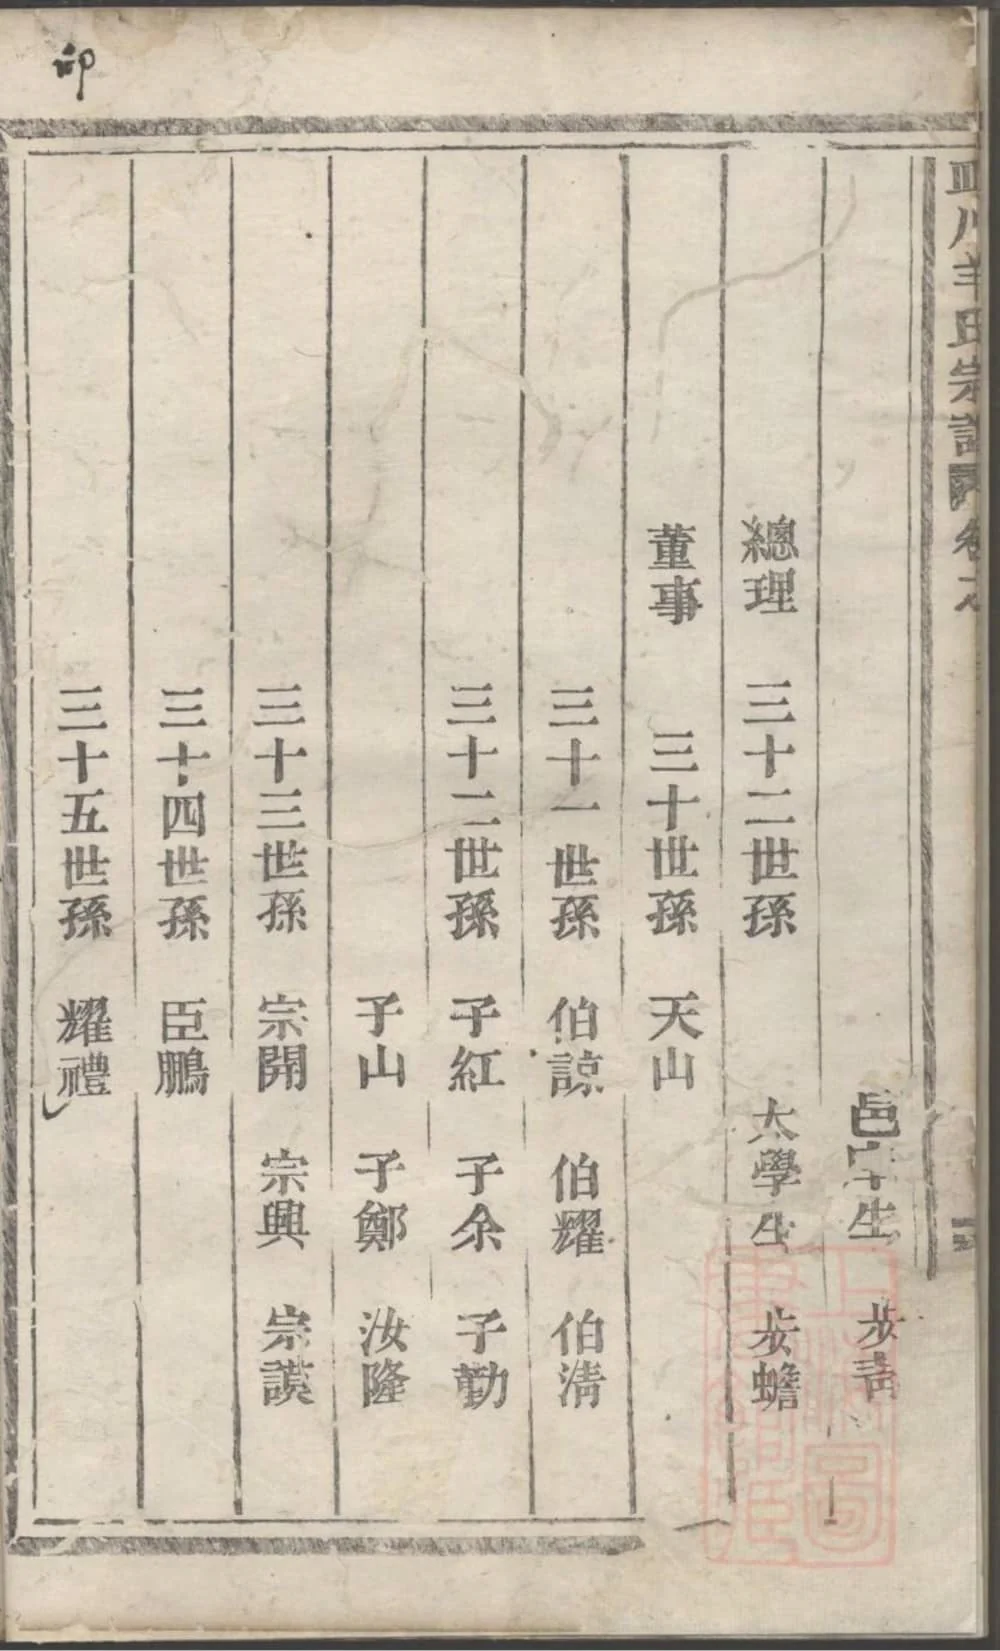 川羊氏宗譜 卷之
邑庠生 步青
總理 三十二世孫 太學生 步蟾
董事 三十世孫 天山
三十一世孫 伯諒 伯耀 伯清
三十二世孫 子紅 子余 子勤
子山 子鄭 汝隆
三十三世孫 宗開 宗興 宗謨
三十四世孫 臣鵬
三十五世孫 耀禮
上海圖書館藏